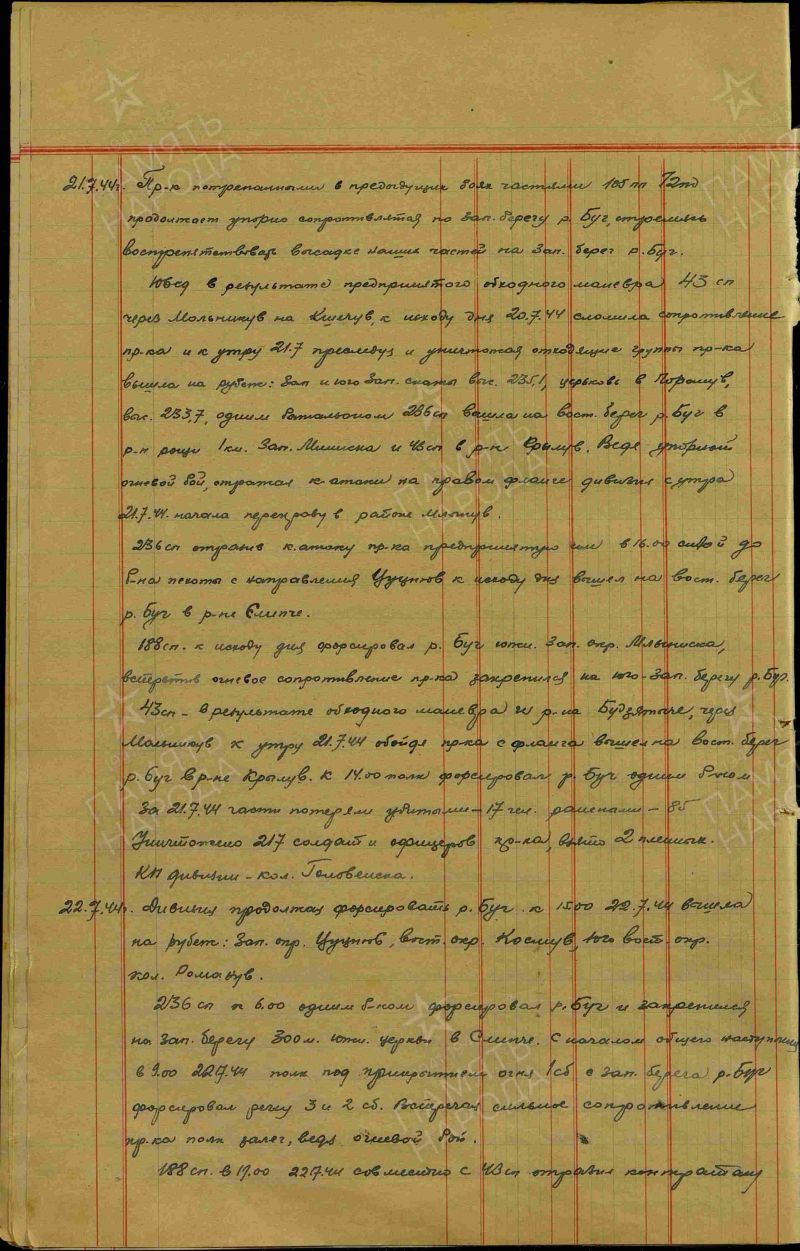 21.7.44г. Пр-к потрепанными в предыдущих боях частями 105 пп 72пд
продолжает упорно сопротивляться по зап. берегу р. Буг, стремясь
воспрепятствовать высадке наших частей на зап. берег р. Буг.
в результате предпринятого обходного маневра 43 сп
через Мольникув на Кшечув, к исходу дня 20.7.44 сломила сопротивление
пр-ка и к утру 21.7 преследуя и уничтожая отходящие группы пр-ка
вышла на рубеж: зап и юго зап. скаты выс. 235,1, церковь в Поромув,
выс. 233,7, одним батальоном 236сп вышла на вост. берег р. Буг в
р-н рощи 1км. зап. и 43сп в р-н Крылув. Ведя упорный
огневой бой, отражая к.атаки на правом фланге дивизия с утра
21.7.44. начала переправу в районе
236сп отразив к.атаку пр-ка предпринятую им в 16.00 силой до
б-на пехоты с направления Цуцнюв к исходу дня вышел на вост. берег
р. Буг в р-не Слипче.
188сп. к исходу дня форсировал р. Буг южн. зап. окр.
встретив огневое сопротивление пр-ка закрепился на юго-зап. берегу р. Буг.
43сп - в результате обходного маневра из р-на Будзятыче, через
Мольникув к утру 21.7.44 обойдя пр-ка с фланга вышел на вост. берег
р. Буг в р-не Крылув. К 14.00 полк форсировал р. Буг одним б-ном
За 21.7.44 части потеряли убитыми - 17 чел. ранеными - 85
Уничтожено 217 солдат и офицеров пр-ка, взято 2 пленных.
КП дивизии - кол. Головенска.
22.7.44г. Дивизия продолжая форсировать р. Буг к 15.00 22.7.44 вышла
на рубеж: зап. окр. Цуцнюв, вост. окр. Космув, юго вост. окр.
кол. Романув.
236 сп к 6.00 одним б-ном форсировал р. Буг и закрепился
на зап. берегу 300 м. южн. церкви в Слипче. С началом общего наступления
в 9.00 22.7.44 полк под прикрытием огня 1сб с зап. берега р. Буг
форсировал реку 3 и 2 сб. Встречая сильное сопротивление
пр-ка полк залег, ведя огневой бой.
188 сп. в 17.00 22.7.44 совместно с 43сп отразил контратаку